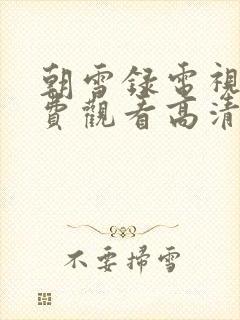 朝雪録電視
費觀看高清
不要掃雪